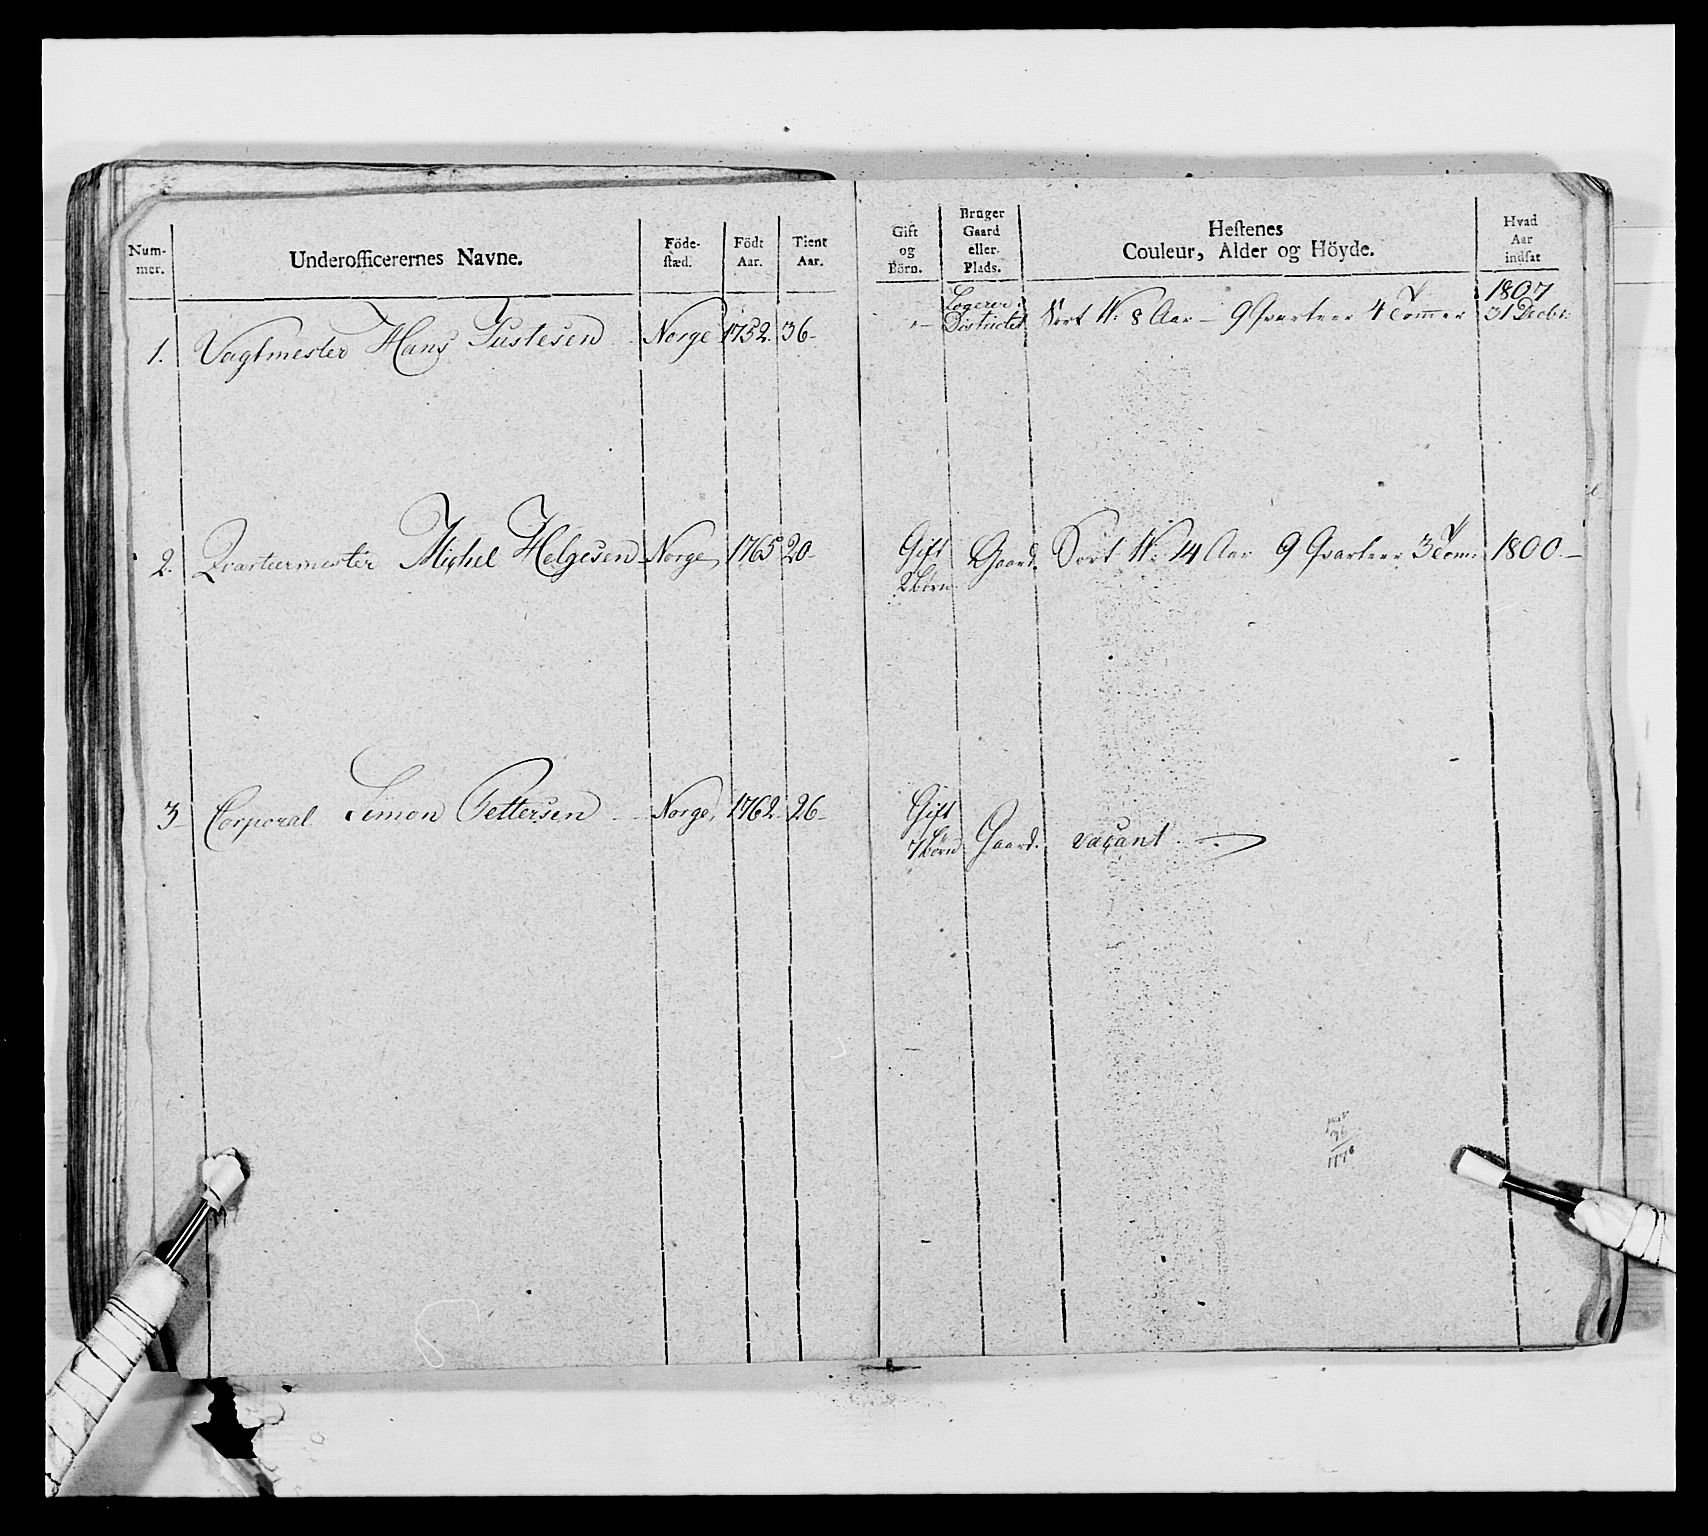 Num-
mer.
Underofficerernes Navne.
Föde-
stæd.
Födt
Aar.
Tient
Aar.
Gift
og
Börn.
Bruger
Gaard
eller
Plads.
Hestenes
Couleur, Alder og Höyde.
Hvad
Aar
indsat
1. Vagtmester Hans Justesen Norge 1752. 36-
Logerer i
Districtet Sort W: 8 Aar - 9 Qvarteer 4 Tommer
1807
31 Decbr:
2. Qvarteermester Michel Helgesen Norge 1765 20-
Gift
2 börn
Gaard. Sort W: 14 Aar 9 Qvarteer 3 Tom: 1800.-
3- Corporal Simon Pettersen Norge, 1762. 26-
Gift
7 börn
Gaard. vacant.